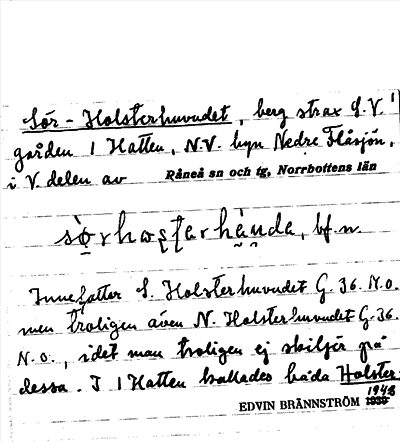 Sör-Holsterhuvudet, berg strax S.V. 1
gården 1 Hatten, N.V. byn Nedre Flåsjön,
i V. delen av Råneå sn och tg, Norrbottens län
bf. n.
Innefattar S. Holsterhuvudet G. 36. N.o.
men troligen även N. Holsterhuvudet G. 36.
N.o., idet man troligen ej skiljer på
dessa. I 1 Hatten kallades båda Holster-
1948
EDVIN BRÄNNSTRÖM 1939